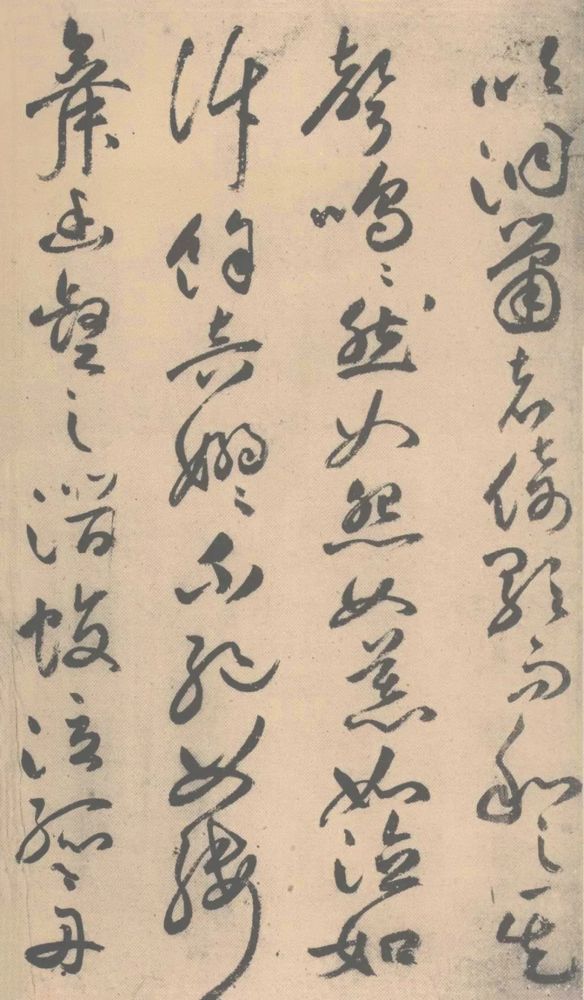 吹洞簫者倚歌而和之其
聲嗚〻然如怨如慕如泣如
訴餘音嫋〻不絕如縷
舞幽壑之潛蛟泣孤舟